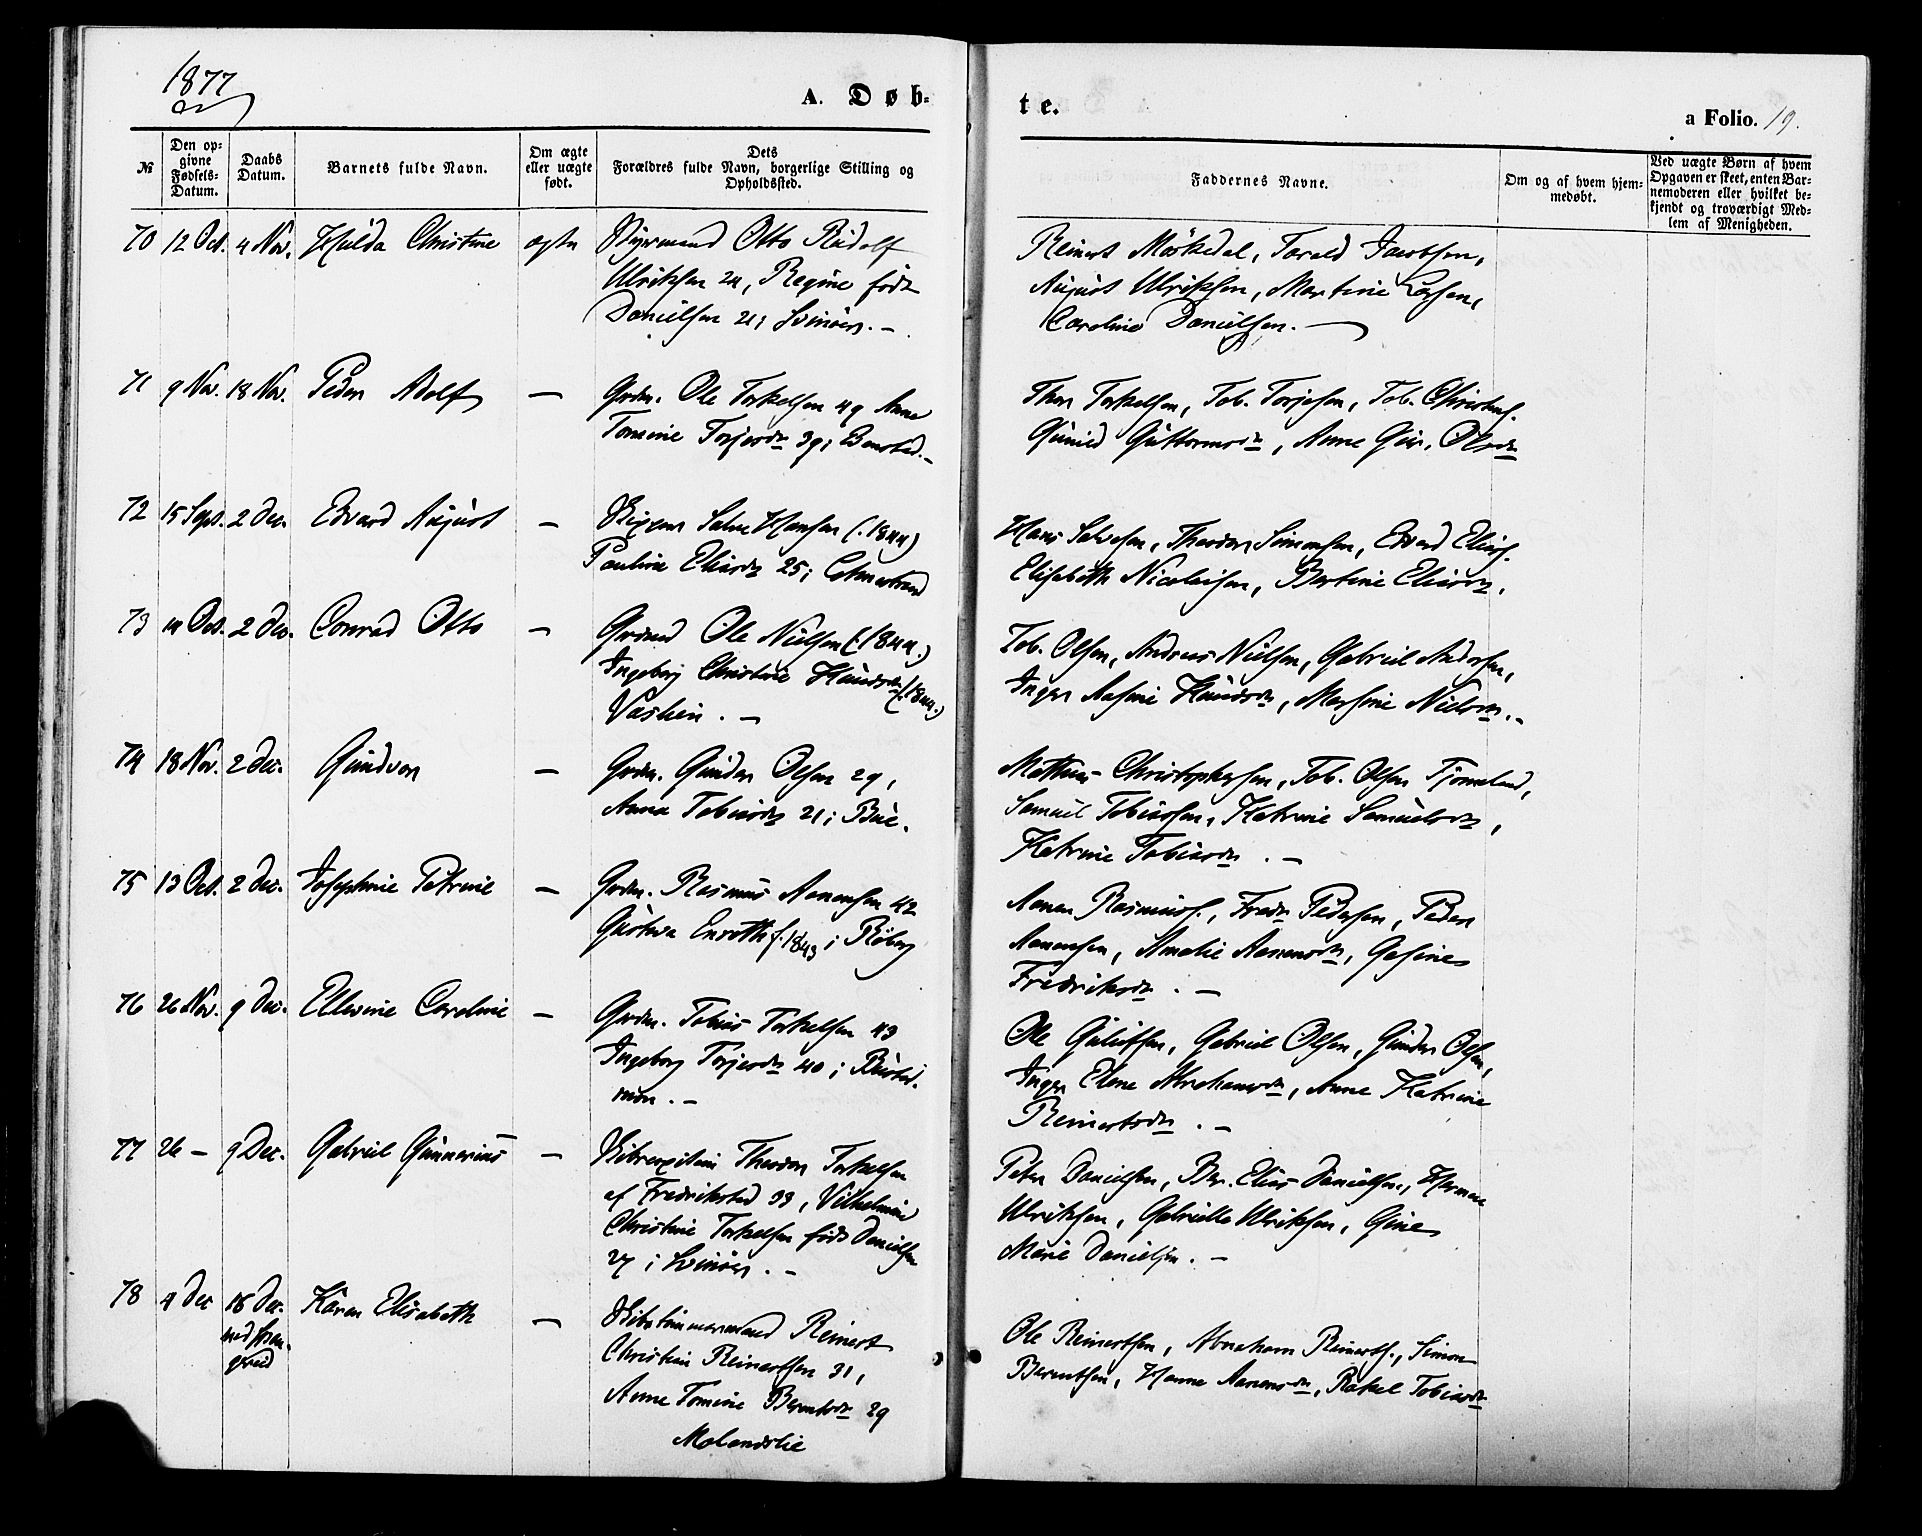 1877
A. Døb-
te.
a Folio. 19.
№
Den op-
givne
Fødsels-
Datum.
Daabs
Datum.
Barnets fulde Navn.
Om ægte
eller uægte
født.
Dets
Forældres fulde Navn, borgerlige Stilling og
Opholdssted.
Faddernes Navne.
Om og af hvem hjem-
medøbt.
Ved uægte Børn af hvem
Opgaven er skeet, enten Bar-
nemoderen eller hvilket be-
kjendt og troværdigt Med-
lem af Menigheden.
70 12 Oct. 4 Nov. Hulda Christine ægte Styrmand Otto Rudolf
Ulriksen 24, Regine født
Danielsen 21; Svinöer. –
Reinert Mörkedal, Torald Jacobsen,
August Ulriksen, Martine
Caroline Danielsen. –
71 9 Nov. 18 Nov. Peder Adolf – Grdm. Ole Torkelsen 49 Anne
Tomine Torjesdr 39;
Thor Torkelsen, Tob. Torjesen, Tob. Christens.
Guttormsdr, Anne Gur. Olsdr
72 15 Sept. 2 Dec. Edvard August – Skipper Salve Hansen (1844)
Pauline Eliasdr 25;
Hans Salvesen, Theodor Simonsen, Edvard Elias.
Elisabeth Nicolaisen, Bertine Eliasdr.
73 14 Oct. 2 Dec. Conrad Otto – Grdmd Ole Nielsen (1844.)
Ingeborg Christine (1844.)
Tob. Olsen, Andreas Nielsen, Gabriel Andersen,
Inger Aasine Marsine Nielsdr. –
74 18 Nov. 2 Dec. Gundvor – Grdm. Gunder Olsen 29,
Anna Tobiasdr 21; Bue.
Mathias Christophersen, Tob. Olsen Tjomeland,
Samuel Tobiassen, Katrine Samuelsdr,
Katrine Tobiasdr. –
75 13 Oct. 2 Dec. Josephine Petrine – Grdm. Rasmus Aanensen 42
Gustava f. 1843; Röberg
Aanen Rasmuss., Fredr. Pedersen, Peder
Aanensen, Amalie Aanensdr, Gesine
Fredriksdr. –
76 26 Nov. 9 Dec. Ellevine Caroline – Grdm. Tobias Torkelsen 43
Ingeborg Torjesdr 40;
Ole Gabriel Olsen, Gunder Olsen,
Inger Elene Abrahamsdr, Anne Katrine
Reinertsdr. –
77 26 – 9 Dec. Gabriel Gunnerius – Skibscapitain Theodor Torkelsen
af Fredrikstad 33, Vilhelmine
Christine Torkelsen født Danielsen
27; Svinöer. –
Peter Danielsen, Ber. Elias Danielsen, Herman
Ulriksen, Gabrielle Ulriksen, Gine
Marie Danielsen. –
78 4 Dec 16 Dec. Karen Elisabeth – Skibstömmermand Reinert
Christian Reinertsen 31,
Anne Tomine Berntsdr 29
Molandslie
Ole Reinertsen, Abraham Reinerts., Simon
Berentsen, Hanne Aanensdr, Rakel Tobiasdr